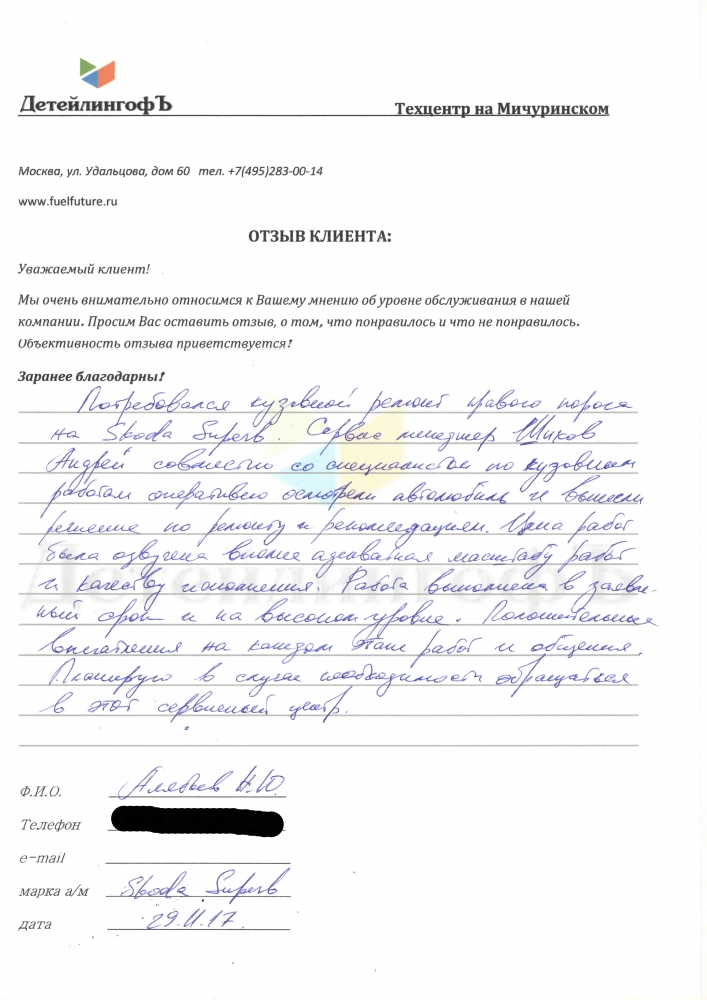 ДетейлингофЪ
Техцентр на Мичуринском
Москва, ул. Удальцова, дом 60 тел. +7(495)283-00-14
www.fuelfuture.ru
ОТЗЫВ КЛИЕНТА:
Уважаемый клиент!
Мы очень внимательно относимся к Вашему мнению об уровне обслуживания в нашей
компании. Просим Вас оставить отзыв, о том, что понравилось и что не понравилось.
Объективность отзыва приветствуется!
Заранее благодарны!
Потребовался кузовной ремонт правого порога
на Skoda Superb. Сервис менеджер Шиков
Андрей совместно со специалистом по кузовным
работам оперативно осмотрели автомобиль и вынесли
решение по ремонту и рекомендациям. Цена работ
была озвучена вполне адекватная масштабу работ
и качеству исполнения. Работа выполнена в заявлен-
ный срок и на высоком уровне. Положительные
впечатления на каждом этапе работ и общения.
Планирую в случае необходимости обращаться
в этот сервисный центр.
Ф.И.О. Алябьев Н.Ю.
Телефон
e-mail
марка а/м Skoda Superb
дата 29.11.17.